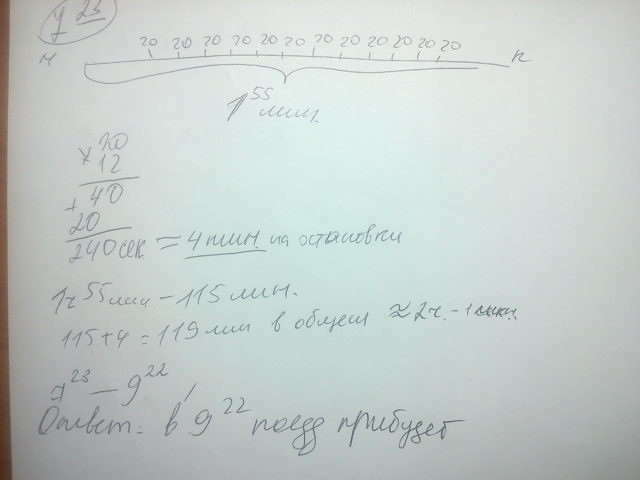 7 23
20 20 20 20 20 20 20 20 20 20 20 20
М К
1 55 мин.
× 20
12
+ 40
20
240 сек. = 4 мин. на остановки
1ч 55 мин - 115 мин.
115+4 = 119 мин в общем ≈ 2ч. - 1 мин.
7 23 — 9 22
Ответ: в 9 22 поезд прибудет